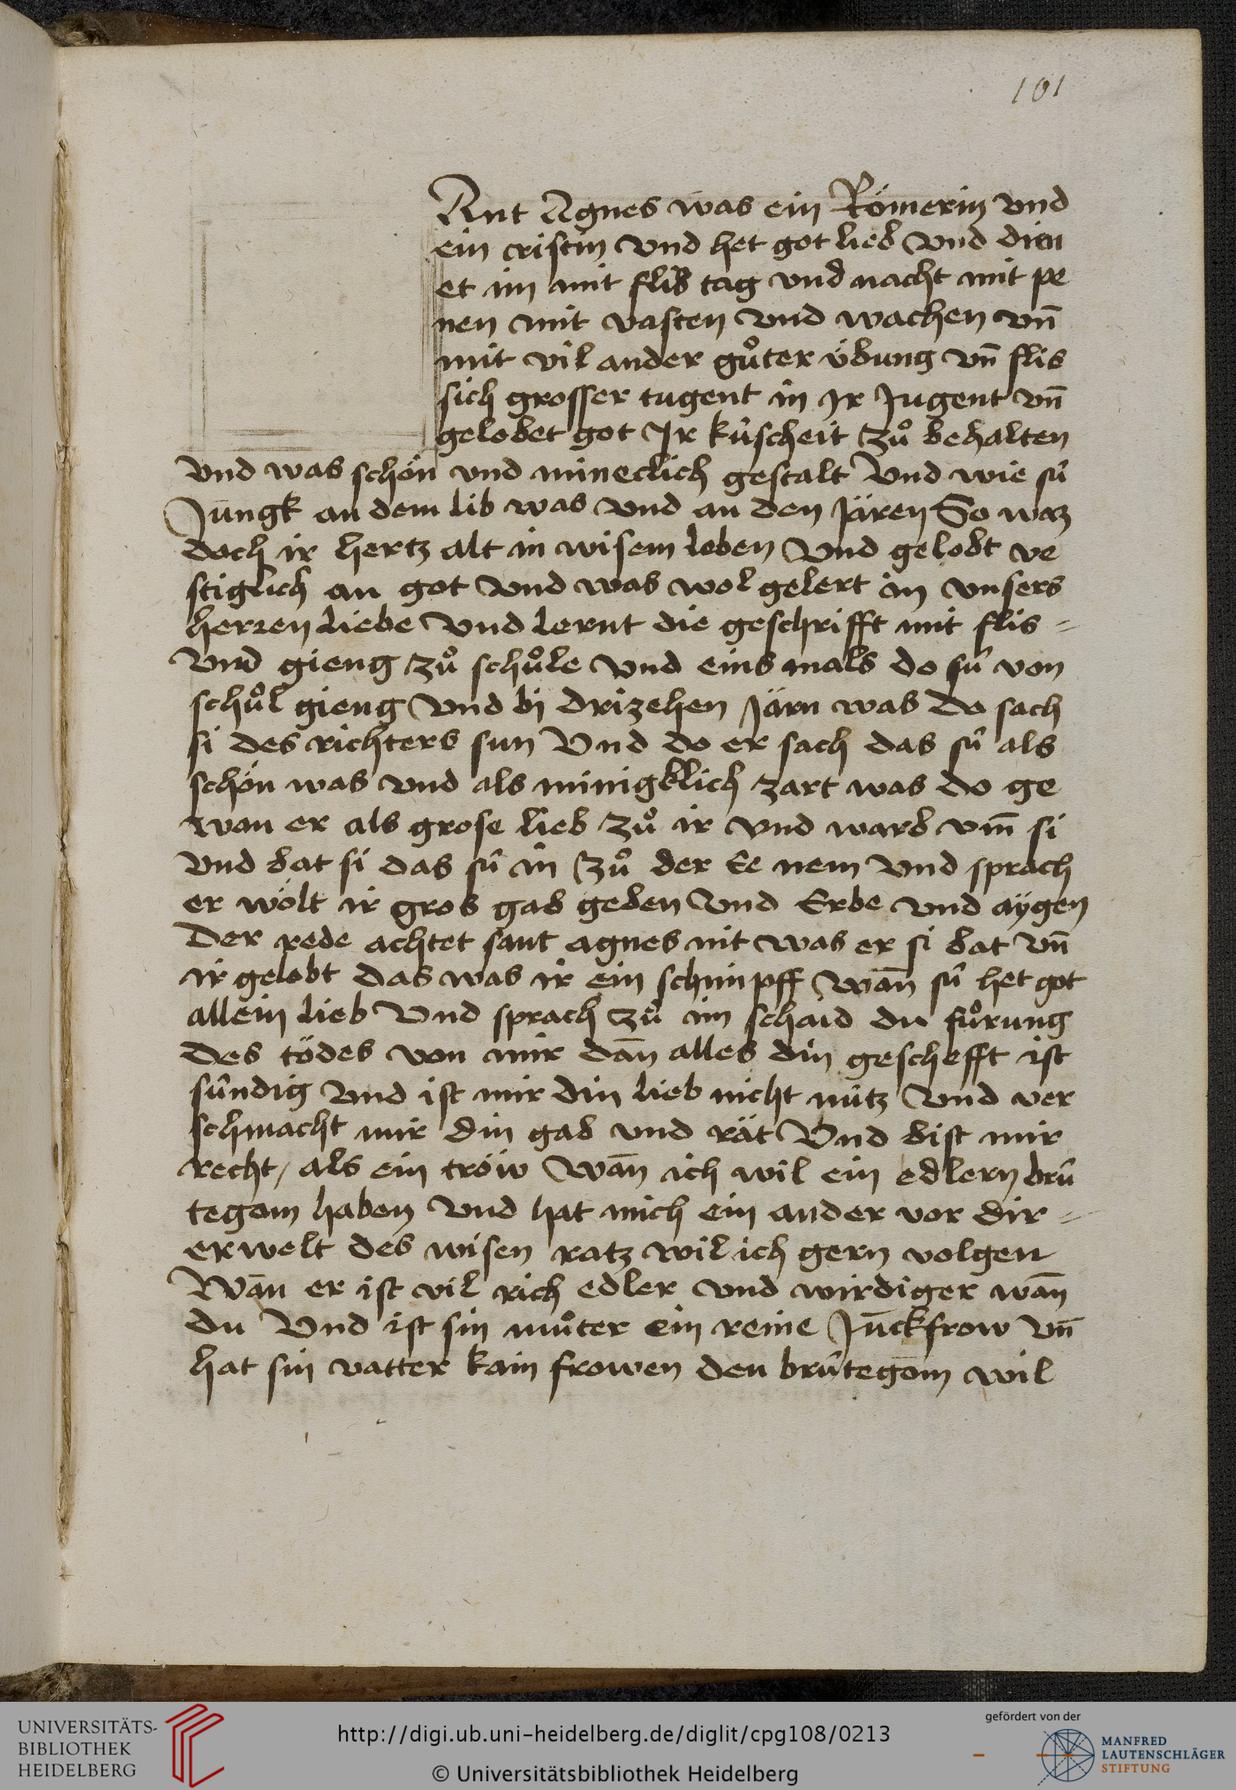 101
Ant Agnes was ein Römerin vnd
ein cristin vnd het got lieb vnd dien
et im mit flis tag vnd nacht mit pe
nen mit vasten vnd wachen vn̄
mit vil ander gůter v̈bung vn̄ flis
sich grosser tugent in Jr Jugent vn̄
gelobet got Jr kûscheit zů behalten
vnd was schön vnd mineclich gestalt Vnd wie sû
Jungk an dem lib was vnd an den Jären So waz
doch ir hertz alt in wisem leben Vnd gelobt ve
stiglich an got vnd was wol gelert in vnsers
herren liebe Vnd lernt die geschrifft mit flis =
Vnd gieng zů schůle vnd eins mals do sû von
schůl gieng Vnd bi drizehen Järn was do sach
si des richters sun Vnd do er sach das sû als
schön was vnd als minigklich zart was do ge
wan er als grose lieb zů ir vnd warb vm̄ si
vnd bat si das sû in zů der Ee nem Vnd sprach
er wölt ir gros gab geben Vnd Erbe vnd aÿgen
Der rede achtet sant agnes nit was er si bat vn̄
ir gelobt das was ir ein schimpff wān sû het got
allein lieb Vnd sprach zů im schaid du fůrung
des tödes von mir dān alles din geschefft ist
sûndig Vnd ist mir din lieb nicht nûtz Vnd ver
schmacht mir din gab vnd rät Vnd bist mir
recht / als ein tröiw Wān ich wil ein edlern brû
tegom haben Vnd hat mich ein ander vor dir =
erwelt des wisen ratz wil ich gern volgen
Wān er ist vil rich edler vnd wirdiger wān
du Vnd ist sin můter ein reine Junckfrow vn̄
hat sin vatter kain frowen den brûtegom wil
UNIVERSITÄTS-
BIBLIOTHEK
HEIDELBERG
http://digi.ub.uni-heidelberg.de/diglit/cpg108/0213
© Universitätsbibliothek Heidelberg
gefördert von der
MANFRED
LAUTENSCHLÄGER
STIFTUNG